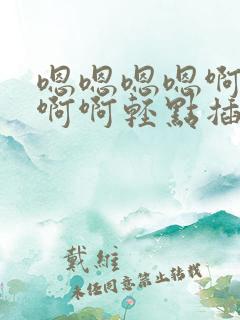 嗯嗯嗯嗯啊
啊啊轻點插
戴維
未任同意禁止转载